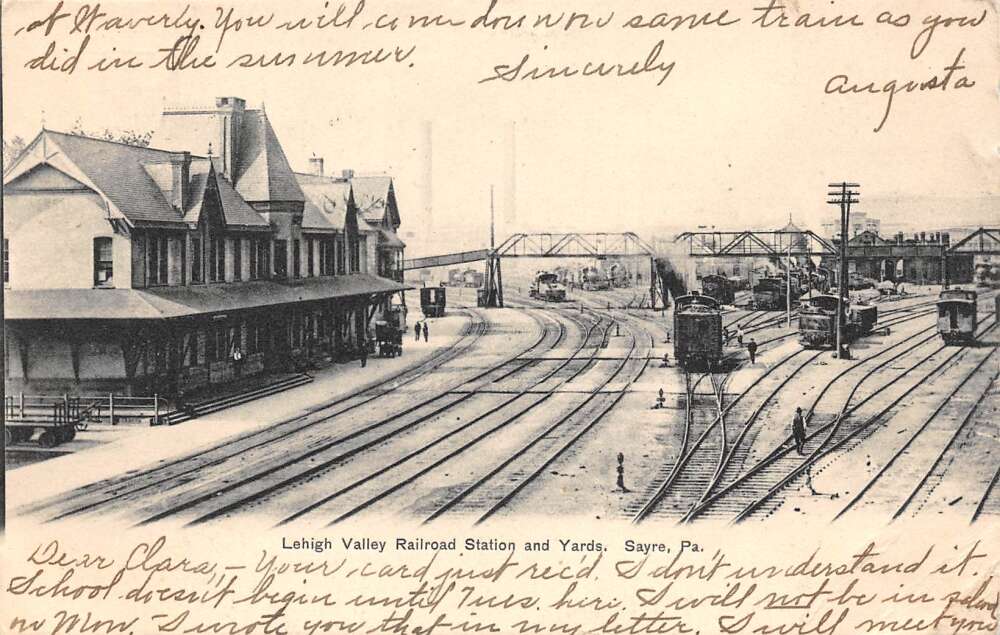 at Waverly. You will come down on same train as you
did in the summer.
Sincerely
Augusta
Lehigh Valley Railroad Station and Yards. Sayre, Pa.
Dear Clara,- Your card just rec'd. I don't understand it.
School doesn't begin until Tues. here. I will not be in school
on Mon. I wrote you that in my letter. I will meet you